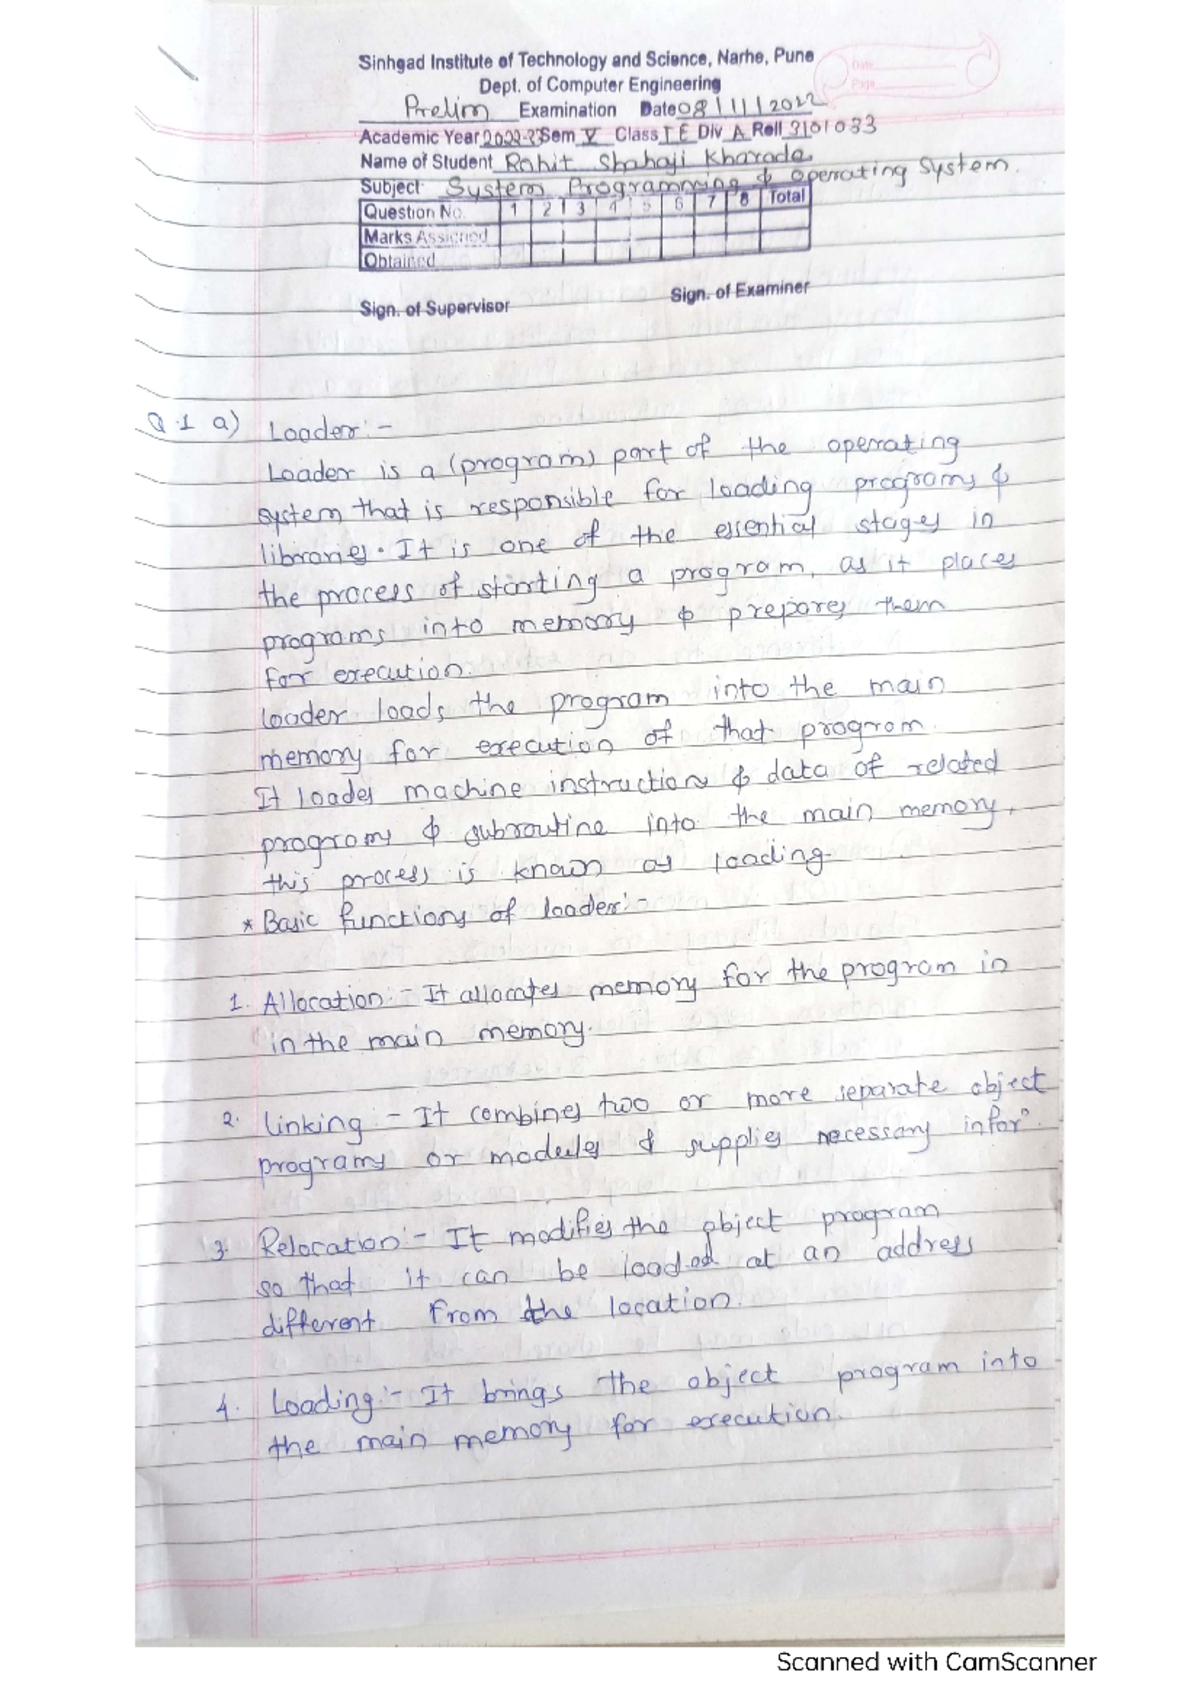 Sinhgad Institute of Technology and Science, Narhe, Pune
Dept. of Computer Engineering
Prelim Examination Date 08/11/2022
Academic Year 2022-23 Sem V Class TE Div A Roll 3101033
Name of Student Rohit Shahaji Kharade
Subject System Programming & Operating System.
Question No. 1 2 3 4 5 6 7 8 Total
Marks Assigned
Obtained
Sign. of Supervisor Sign. of Examiner
Date
Page
Q.1 a) Loader:-
Loader is a (program) part of the operating
system that is responsible for loading programs &
libraries. It is one of the essential stages in
the process of starting a program, as it places
programs into memory & prepares them
for execution.
loader loads the program into the main
memory for execution of that program.
It loades machine instructions & data of related
programs & subroutine into the main memory,
this process is known as loading.
* Basic functions of loader:-
1. Allocation:- It allocates memory for the program in
in the main memory.
2. linking:- It combines two or more separate object
programs or modules & supplies necessary inforⁿ.
3. Relocation:- It modifies the object program
so that it can be loaded at an address
different from the location.
4. Loading:- It brings the object program into
the main memory for execution.
Scanned with CamScanner